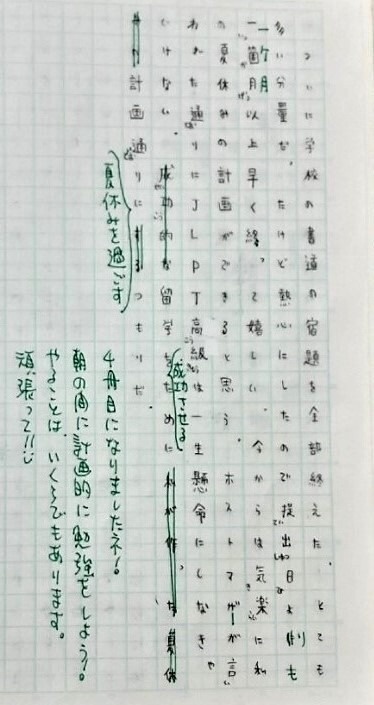 ついに学校の書道の宿題を全部終えた。とても
多い分量だ。たけど熱心にしたので提出日よりも
一ケ月
一箇月以上早く終って嬉しい。今からは気楽に私
の夏休みの計画ができると思う。ホストマザーが言
われた通りにJLPT高級は一生懸命にしなき
成功させる
いけない。成功的な留学 ために私が作った夏休
みの計画通りにするつもりだ。
夏休みを過ごす
4冊目になりましたネ!
朝の間に計画的に勉強をしよう!
やることは、いくらでもあります。
頑張って!!